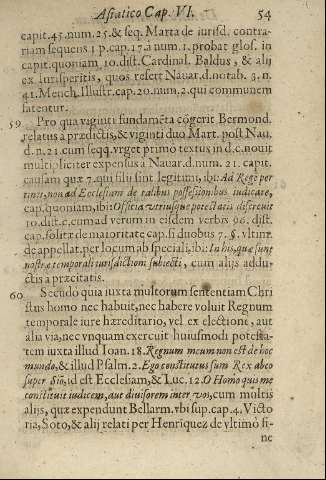 Asiatico Cap. VI. 54
capit. 45. num. 25. & seq. Marta de iurisd. contra-
riam sequens 1 p. cap. 17. à num. 1. probat glos. in
capit. quoniam, 10. dist. Cardinal. Baldus, & alij
ex iurisperitis, quos refert Nauar. d. notab. 3. n.
41. Mench. Illustr. cap. 20. num. 2. qui communem
fatentur.
59 Pro qua viginti fundamẽta cõgerit Bermond.
relatus a prædictis, & viginti duo Mart. post Nau.
d. n. 21. cum seqq. vrget primo textus in d. c. nouit
multipliciter expensus a Nauar. d. num. 21. capit.
causam quæ 7. qui filij sint legitimi, ibi: Ad Regẽ per
tinet, non ad Ecclesiam de talibus possessionibus iudicare,
cap. quoniam, ibi: Officia vtriusque potestatis discreuit
10. dist. c. cum ad verum in eisdem verbis 96. dist.
cap. solitæ de maioritate cap. si duobus 7. §. vltim.
de appellat. per locum ab speciali, ibi: In his, quæ sunt
nostræ temporali iurisdictioni subiecti, cum alijs addu-
ctis a præcitatis.
60 Secũdo quia iuxta multorum sententiam Chri
stus homo nec habuit, nec habere voluit Regnum
temporale iure hæreditario, vel ex electione, aut
alia via, nec vnquam exercuit huiusmodi potesta-
tem iuxta illud Ioan. 18. Regnum meum non est de hoc
mundo, & illud Psalm. 2. Ego constitutus sum Rex ab eo
super Siõ, id est Ecclesiam, & Luc. 12. O Homo quis me
constituit iudicem, aut diuisorem inter vos, cum multis
alijs, quæ expendunt Bellarm. vbi sup. cap. 4. Victo
ria, Soto, & alij relati per Henriquez de vltimo fi-
ne